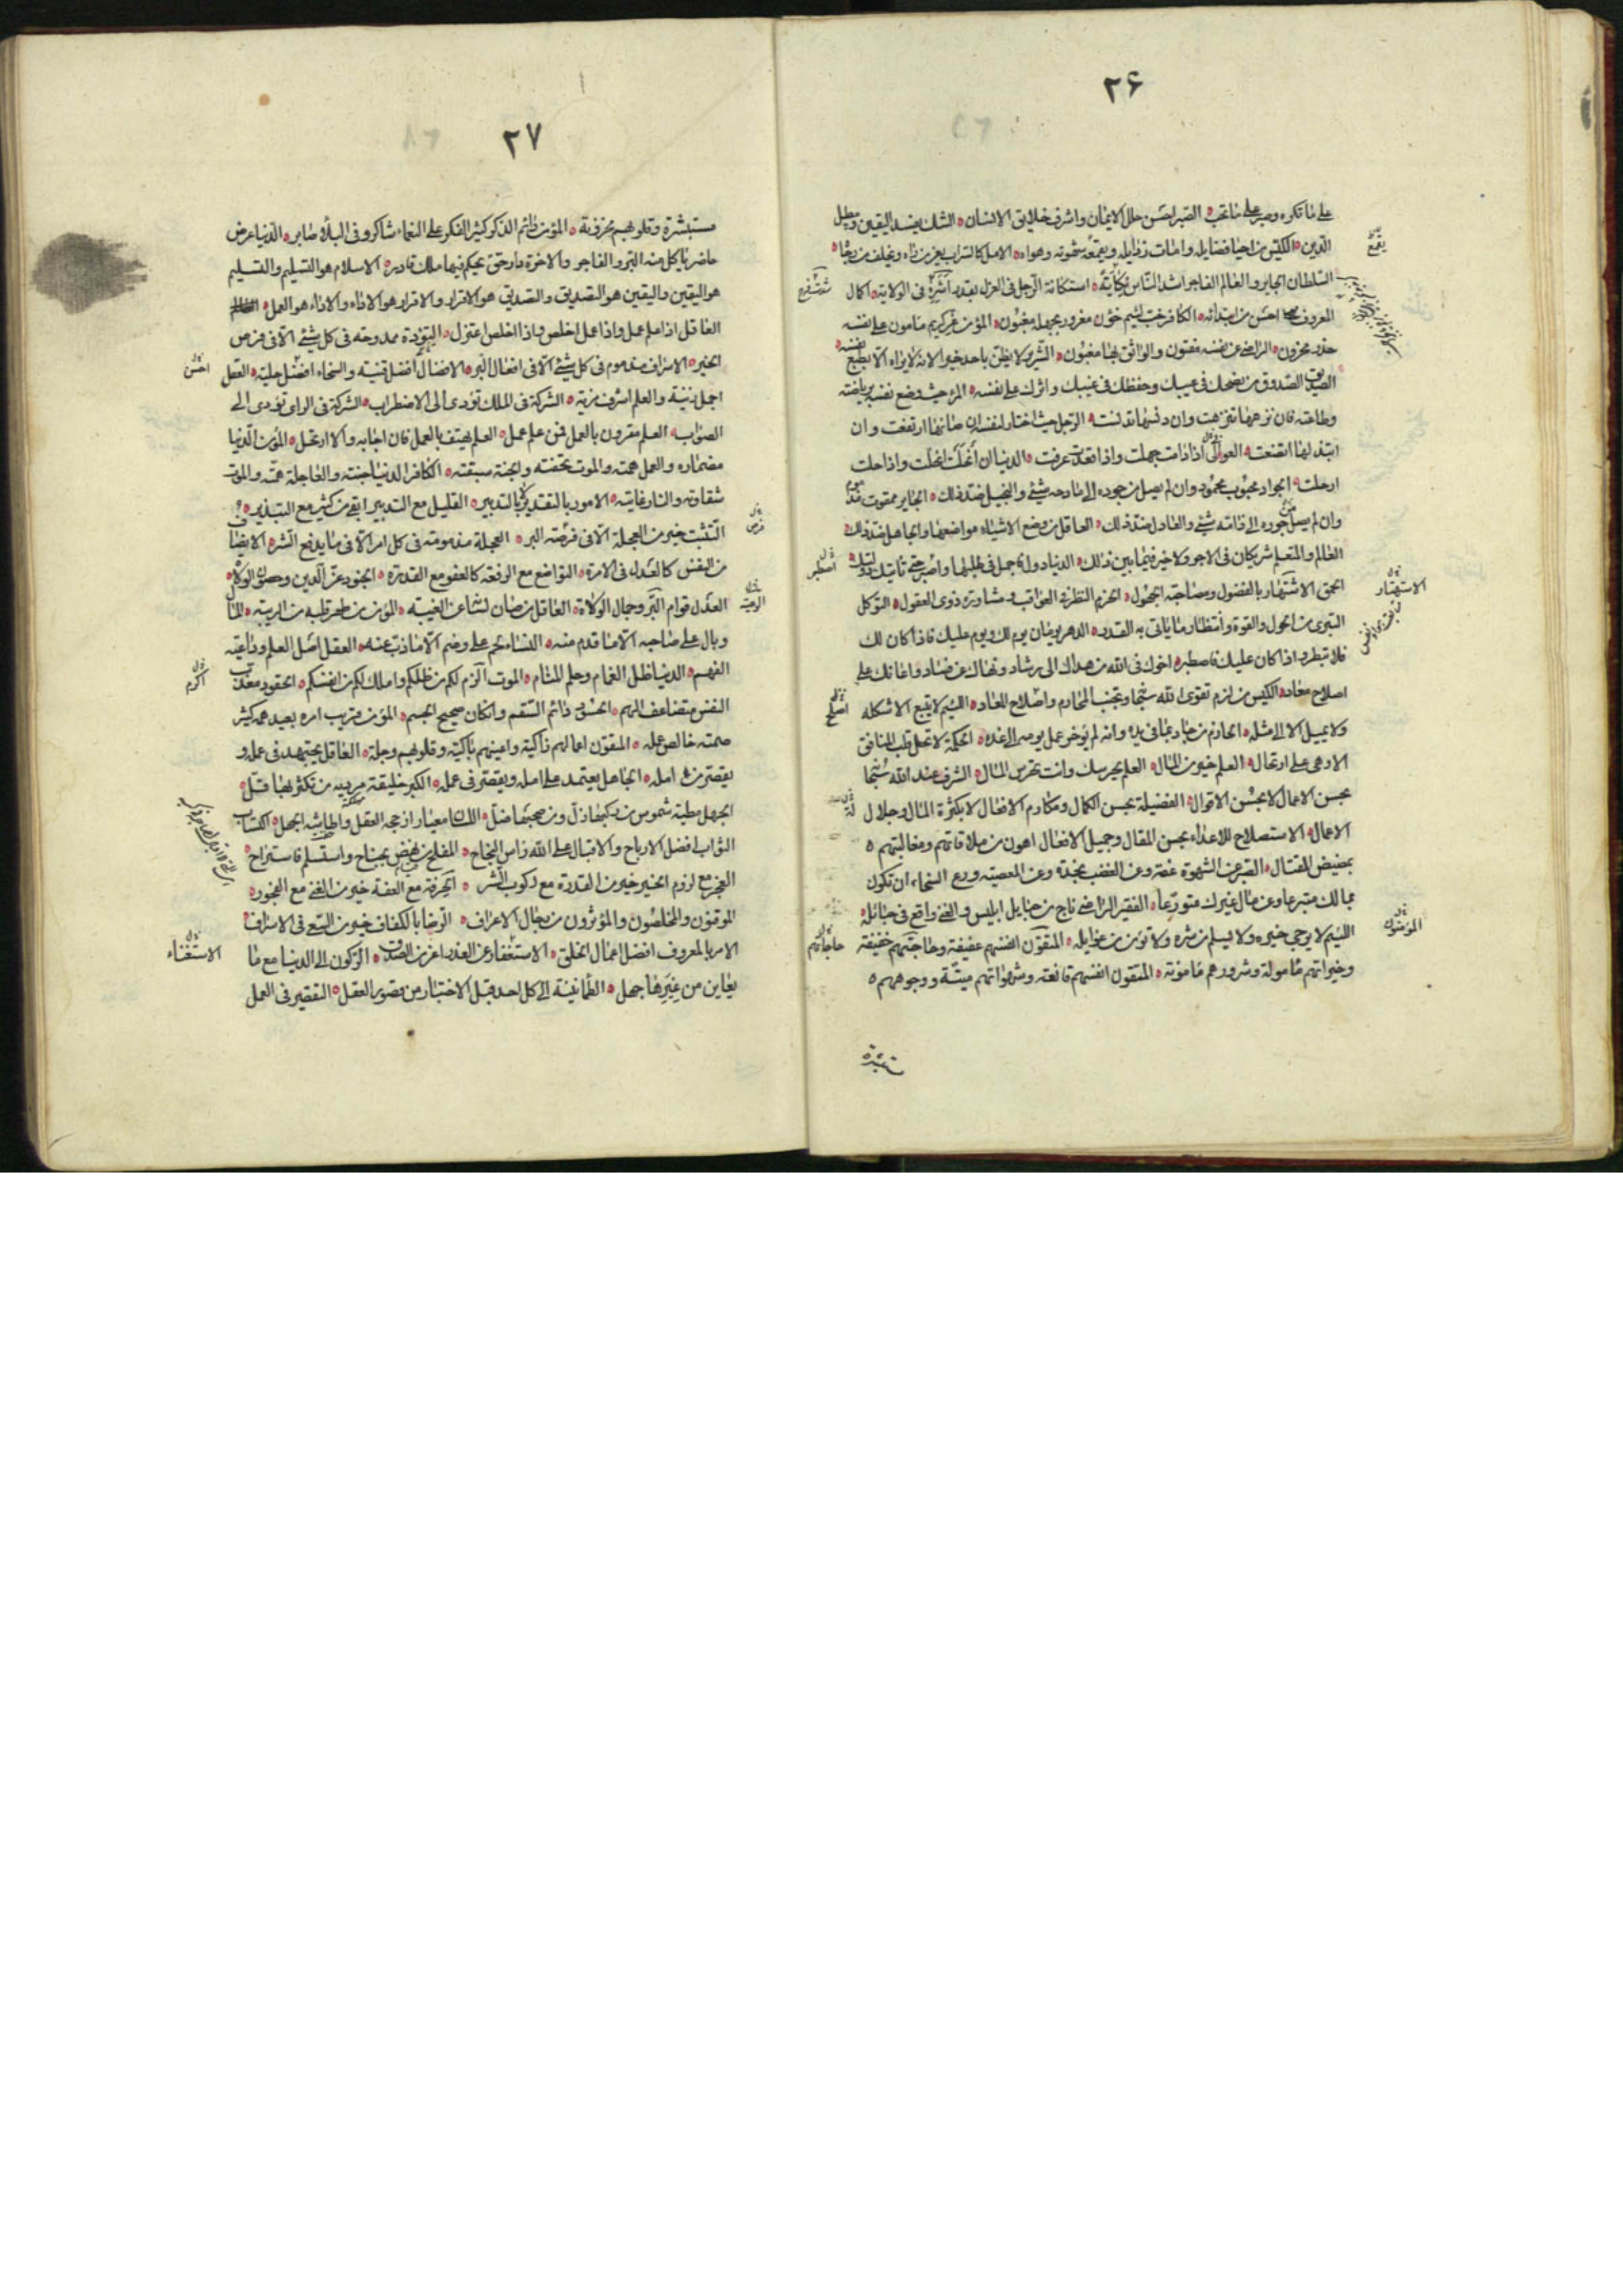 ٢۶
على ما تكره وصبر على ما تحب ه الصبر احسن حلل الايمان واشرف خلايق الانسان ه الشك يفسد اليقين ويبطل
الدين ه الكيس من احيا فضايله وامات رذايله وبقمعه شهوته وهواه ه الامل كالسراب يغر من راه ويخلف من رجاه ه
السلطان الجاير والعالم الفاجر اشد الناس نكاية ه استكانة الرجل فى العزل بقدر اشره فى الولاية ه اكمال
المعروف احسن من ابتدائه ه الكافر خب لئيم خؤن مغرور بجهله مغبون ه المؤمن غر كريم مامون على نفسه
حذر محزون ه الراضى عن نفسه مفتون والواثق بها مغبون ه الشرير لا يظن باحد خيرا لانه لا يراه الا بطبع نفسه ه
الصديق الصدوق من نصحك فى عيبك وحفظك فى غيبك واثرك على نفسه ه المرء حيث وضع نفسه برياضته
وطاعته فان نزهها تنزهت وان دنسها تدنست ه الرجل حيث اختار لنفسه ان صانها ارتفعت وان
ابتذلها اتضعت ه العوافى اذا دامت جهلت واذا فقدت عرفت ه الدنيا ان انحلت انحلت واذا حلت
ارحلت ه الجواد محبوب محمود وان لم يصل من جوده الى مادحه شيئ والبخيل ضد ذلك ه الجاير ممقوت مذموم
وان لم يصل من جوره الى ذامه شيئ والعادل ضد ذلك ه العاقل من وضع الاشياء مواضعها والجاهل ضد ذلك ه
العالم والمتعلم شريكان فى الاجر ولا خير فيما بين ذلك ه الدنيا دول فاجمل فى طلبها واصبر حتى تاتيك دولتك ه
الحمق الاشتهار بالفضول ومصاحبة الجهول ه الحزم النظر فى العواقب ومشاورة ذوى العقول ه التوكل
التبرى من الحول والقوة وانتظار ما ياتى به القدر ه الدهر يومان يوم لك ويوم عليك فاذا كان لك
فلا تبطر واذا كان عليك فاصطبر ه اخوك فى الله من هداك الى رشاد ونهاك عن فساد واعانك على
اصلاح معاد ه الكيس من لزم تقوى الله سبحانه وتجنب المحارم واصلاح المعاد ه اللئيم لا يتبع الا شكله
ولا يميل الا الى مثله ه الحازم من جاد بما فى يده وانه لم يؤخر عمل يومه الى غده ه الحكمة لا تحل قلب المنافق
الا وهى على ارتحال ه العلم خير من المال ه العلم يحرسك وانت تحرس المال ه الشرف عند الله سبحانه
بحسن الاعمال لا بحسن الاقوال ه الفضيلة بحسن الكمال ومكارم الافعال لا بكثرة المال وجلال
الاعمال ه الاستصلاح للاعداء بحسن المقال وجميل الافعال اهون من ملاقاتهم ومغالبتهم ه
بمضيض القتال ه الصبر عن الشهوة عفة وعن الغضب نجدة وعن المعصية ورع السخاء ان تكون
بمالك متبرعا وعن مال غيرك متورعا ه الفقير الراضى ناج من حبايل ابليس والغنى واقع فى حبائله ه
اللئيم لا يرجى خيره ولا يسلم من شره ولا تؤمن من غوايله ه المتقون انفسهم عفيفة وحاجتهم خفيفة
وخيراتهم مامولة وشرورهم مامونة ه المتقون انفسهم قانعة وشهواتهم ميتة ووجوههم ه
يقمع
الاستهتار
اصطبر
اصلح
المؤمنون
حاجاتهم
٢٧
مستبشرة وقلوبهم محزونة ه المؤمن دائم الذكر كثير الفكر على النعماء شاكر وفى البلاء صابر ه الدنيا عرض
حاضر ياكل منه البر والفاجر والاخرة دار حق يحكم فيها ملك قادر ه الاسلام هو التسليم والتسليم
هو اليقين واليقين هو التصديق والتصديق هو الاقرار والاقرار هو الاداء والاداء هو العمل ه
العاقل اذا علم عمل واذا عمل اخلص واذا اخلص اعتزل ه التؤدة ممدوحة فى كل شيئ الا فى فرص
الخير ه الاسراف مذموم فى كل شيئ الا فى افعال البر ه الافضال افضل قنية والسخاء افضل حلية ه العقل
اجمل زينة والعلم اشرف مزية ه الشركة فى الملك تؤدى الى الاضطراب ه الشركة فى الراى تؤدى الى
الصواب ه العلم مقرون بالعمل فمن علم عمل ه العلم يهتف بالعمل فان اجابه والا ارتحل ه المؤمن الدنيا
مضماره والعمل همته والموت تحفته والجنة سبقته ه الكافر الدنيا جنته والعاجلة همته والموت
شقاوته والنار غايته ه الامور بالتقدير لا بالتدبير ه القليل مع التدبير ابقى من كثير مع التبذير ه
التثبت خير من العجلة الا فى فرصة البر ه العجلة مذمومة فى كل امر الا فى ما يدفع الشر ه الانصاف
من النفس كالعدل فى الامرة ه التواضع مع الرفعة كالعفو مع القدرة ه الجنود عز الدين وحصن الولاة ه
العدل قوام البر وجمال الولاة ه العاقل من صان لسانه عن الغيبة ه المؤمن من طهر قلبه من الريبة ه المال
وبال على صاحبه الا ما قدم منه ه النساء لحم على وضم الا ما ذب عنه ه العقل اصل العلم وداعية
الفهم ه الدنيا ظل الغمام وحلم المنام ه الموت الزم لكم من ظلكم واملك لكم من انفسكم ه الحقود معذب
النفس متضاعف الهم ه الحسود دائم السقم وان كان صحيح الجسم ه المؤمن قريب امره بعيد همه كثير
صمته خالص عمله ه المتقون اعمالهم زاكية واعينهم باكية وقلوبهم وجلة ه العاقل يجتهد فى عمله و
يقصر من امله ه الجاهل يعتمد على امله ويقصر فى عمله ه الكبر خليقة مردية من تكثر بها قتل ه
الجهل مطية شموس من ركبها زل ومن صحبها ضل ه اللسان معيار ارجحه العقل واطاشه الجهل ه اكتساب
الثواب افضل الارباح والاقبال على الله راس النجاح ه المفلح من نهض بجناح واستسلم فاستراح ه
العجز مع لزوم الخير خير من القدرة مع ركوب الشر ه الحرفة مع العفة خير من الغنى مع الفجور ه
الموقنون والمخلصون والمؤثرون من رجال الاعراف ه الرضا بالكفاف خير من السعى فى الاسراف ه
الامر بالمعروف افضل اعمال الخلق ه الاستغفار عن العذر اعز من الصدق ه الركون الى الدنيا مع ما
يعاين من غيرها جهل ه الطمانينة الى كل احد قبل الاختبار من قصور العقل ه التقصير فى العمل
احسن
فرص
الرعية
اكرم
الاستغناء